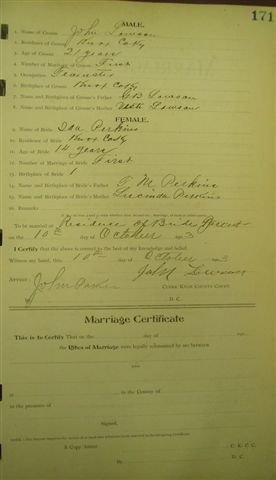 171
MALE.
1. Name of Groom John Lawson
2. Residence of Groom Knox Co Ky
3. Age of Groom 21 years
4. Number of Marriage of Groom First
5. Occupation Teamster
6. Birthplace of Groom Knox Co Ky
7. Name and Birthplace of Groom's Father Lawson
8. Name and Birthplace of Groom's Mother Lawson
FEMALE.
9. Name of Bride Ida Perkins
10. Residence of Bride Knox Co Ky
11. Age of Bride 14 years
12. Number of Marriage of Bride First
13. Birthplace of Bride
14. Name and Birthplace of Bride's Father T. M. Perkins
15. Name and Birthplace of Bride's Mother Lucinda Perkins
16. Remarks
To be married at Residence of Bride Parent
on the 10th day of October 3
I Certify that the above is correct to the best of my knowledge and belief.
Witness my hand, this 10th day of October 3
John Lawson
Attest:
John Parker
Clerk Knox County Court.
D. C.
Marriage Certificate
This is to Certify That on the day of
the Rites of Marriage were legally solemnized by me between
and
at in the County of
in the presence of
Signed,
A Copy Attest: C. K. C. C.
By D. C.